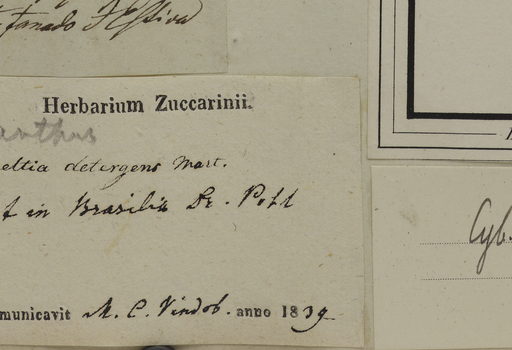 Herbarium Zuccarinii.
anthus
eltia detergens Mart.
f in Brasilia Dr. Pohl
municavit M. C. Vindob. anno 1839
Cyb.